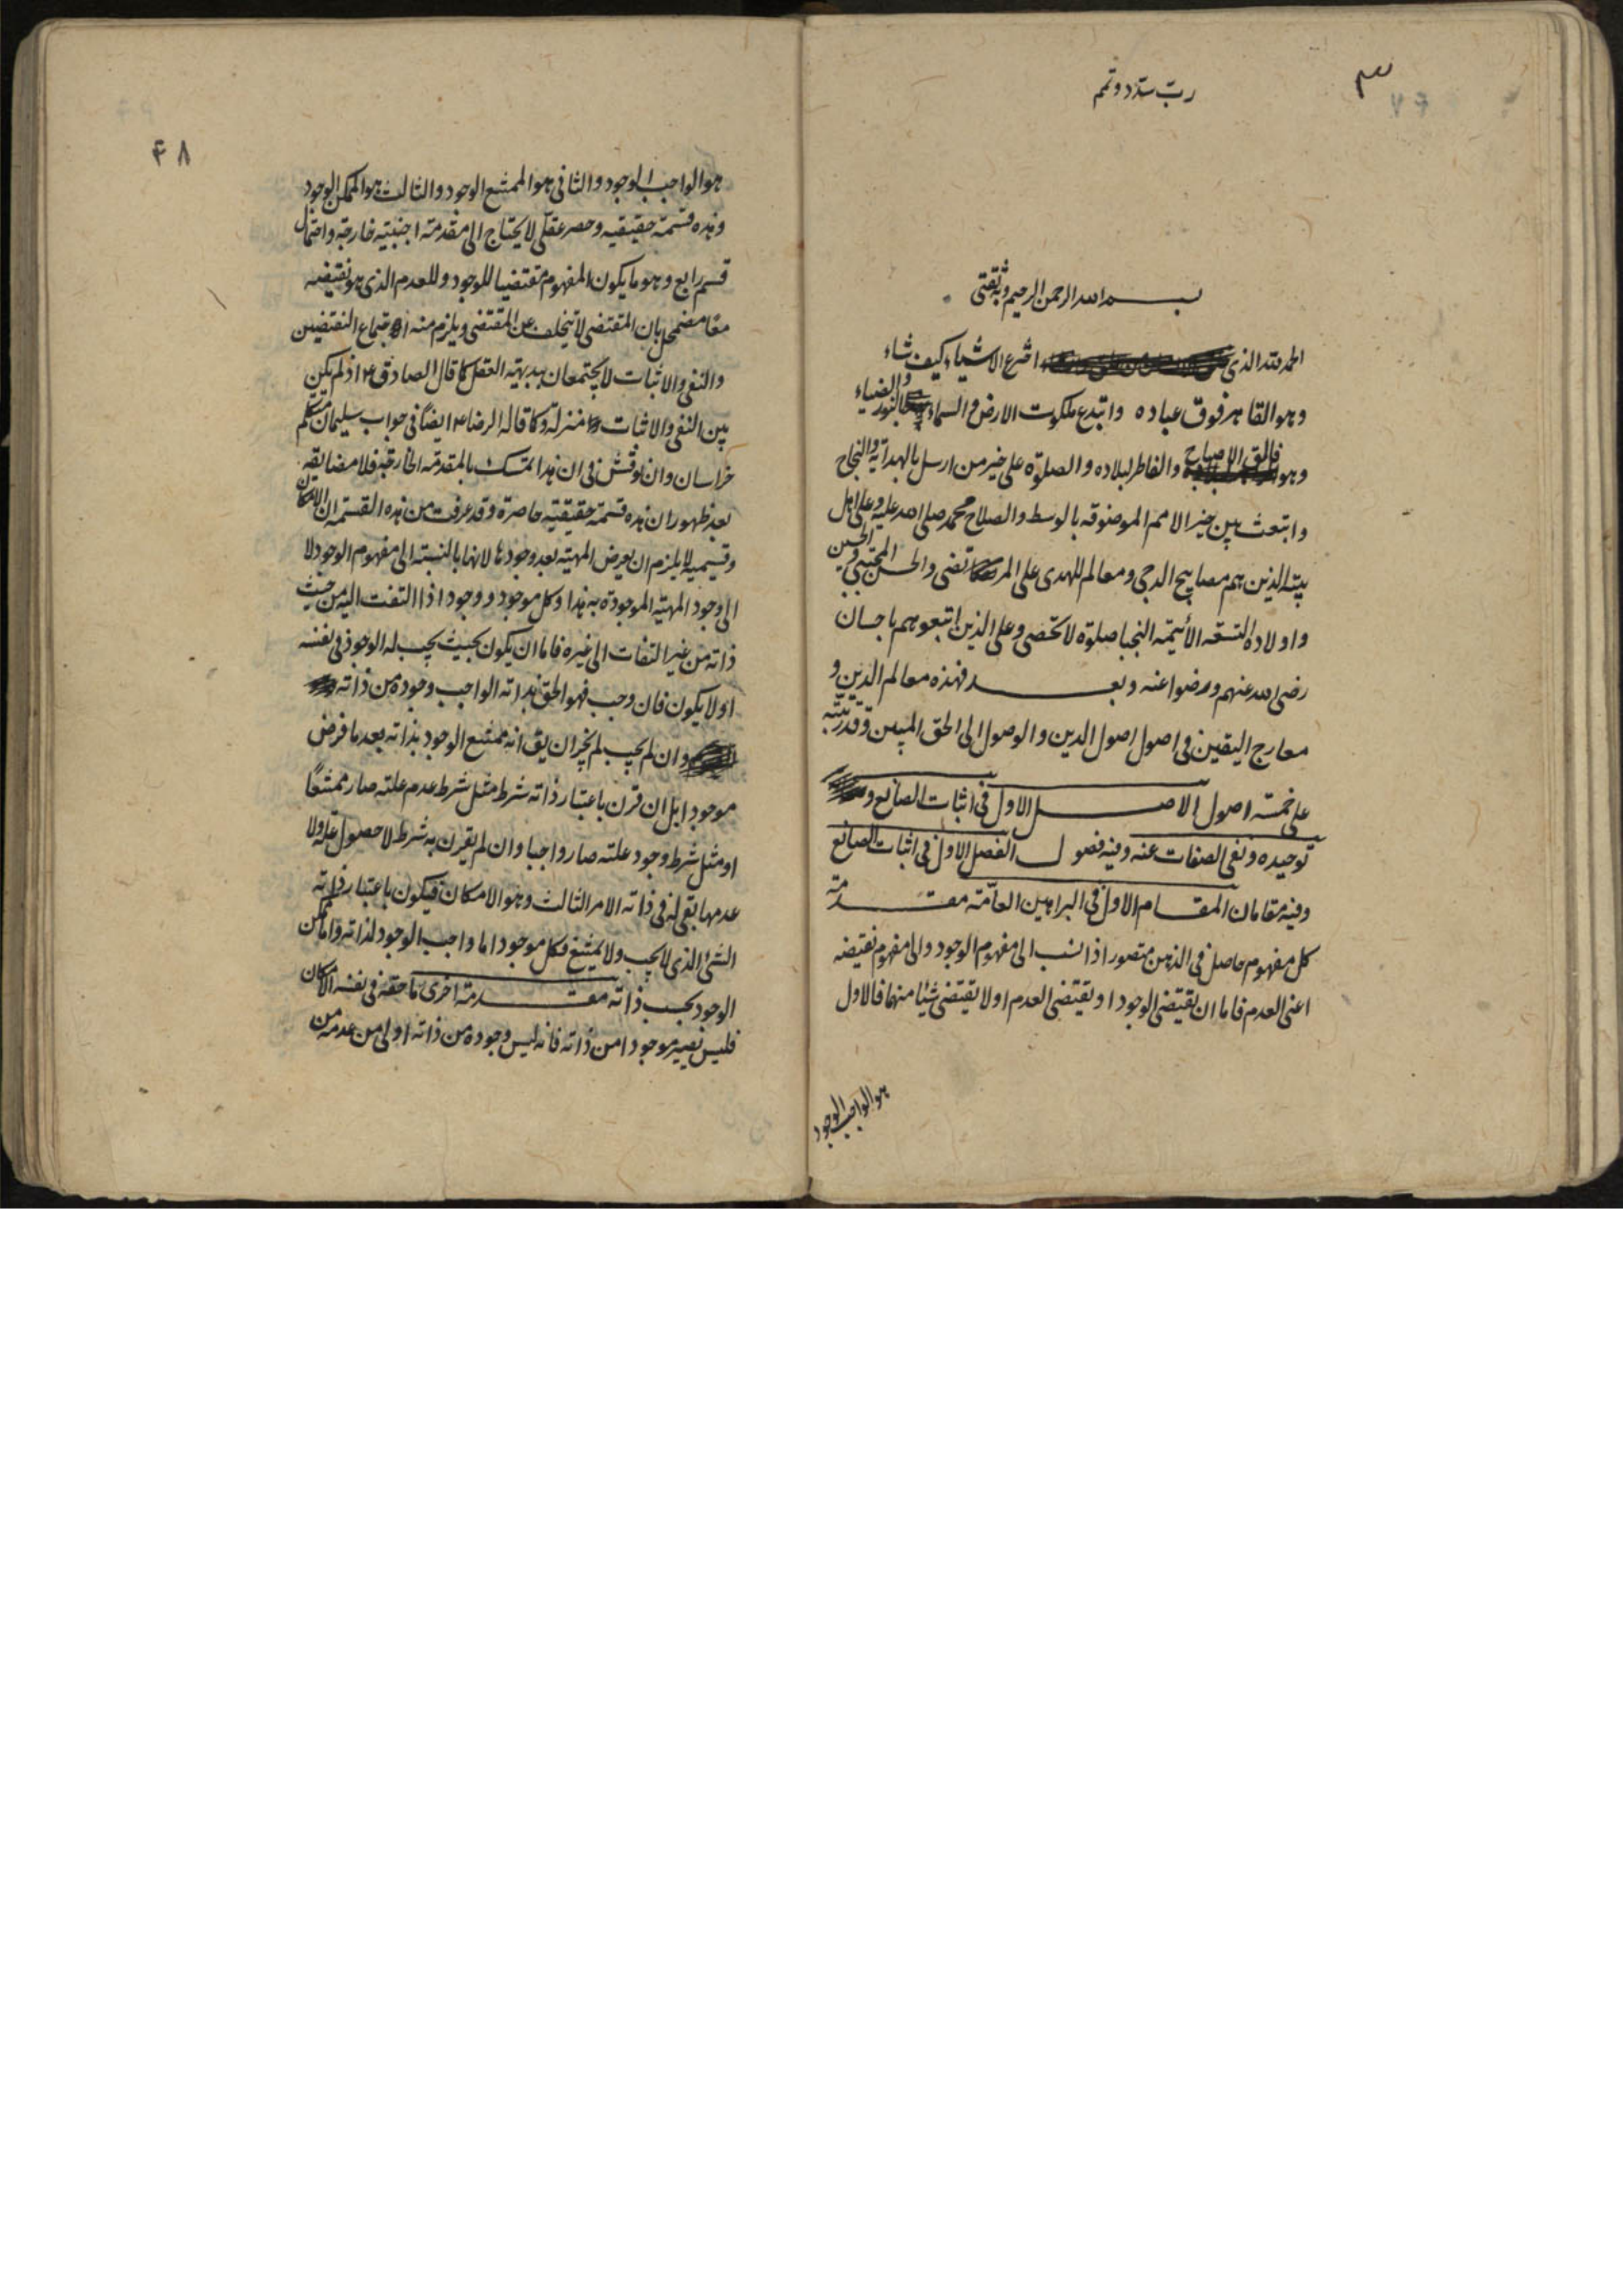 ٣
٤٧
ربّ سدّد وتمم
بسم الله الرحمن الرحيم وبه ثقتى
الحمد لله الذى اخترع الاشياء كيف شاء
وهو القاهر فوق عباده وابتدع ملكوت الارض والسماء بالنور والضياء
وهو فالق الاصباح والفاطر لبلاده والصلوة على خير من ارسل بالهداية والنجاح
وابتعث بين خير الامم الموصوفه بالوسط والصلاح محمد صلى الله عليه وعلى اهل
بيته الذين هم مصابيح الدجى ومعالم للهدى على المرتضى والحسن المجتبى والحسين
واولاده التسعه الأئيمّه النجبا صلوة لا تحصى وعلى الذين اتبعوهم باحسان
رضى الله عنهم ورضوا عنه وبعد فهذه معالم الدين و
معارج اليقين فى اصول اصول الدين والوصول الى الحق المبين وقد رتبته
على خمسة اصول الاصل الاول فى اثبات الصانع و
توحيده ونفى الصفات عنه وفيه فصول الفصل الاول فى اثبات الصانع
وفيه مقامان المقام الاول فى البراهين العامّة مقدمة
كل مفهوم حاصل فى الذهن متصور اذا نسب الى مفهوم الوجود والى مفهوم نقيضه
اعنى العدم فاما ان يقتضى الوجود او يقتضى العدم او لا يقتضى شيئا منهما فالاول
هو الواجب الوجود
٤٨
هو الواجب الوجود والثانى هو الممتنع الوجود والثالث هو الممكن الوجود
وهذه قسمة حقيقيه وحصر عقلى لا يحتاج الى مقدمة اجنبيه خارجة واحتمال
قسم رابع وهو ما يكون المفهوم مقتضيا للوجود وللعدم الذى هو نقيضه
معًا مضمحل بان المقتضى لا يتخلف عن المقتضى ويلزم منه اجتماع النقيضين
والنفى والاثبات لا يجتمعان ببديهة العقل كما قال الصادق ع اذ لم يكن
بين النفى والاثبات منزلة وكما قاله الرضا ع ايضًا فى جواب سليمان متكلم
خراسان وان نوقش فى ان هذا تمسك بالمقدمة الخارجة فلا مضايقه
بعد ظهور ان هذه قسمة حقيقية حاصرة وقد عرفت من هذه القسمة ان الامكان
وقسيميه لا يلزم ان يعرض المهية بعد وجودها لانها بالنسبة الى مفهوم الوجود لا
الى وجود المهية الموجودة به هذا وكل موجود ووجود اذا التفت اليه من حيث
ذاته من غير التفات الى غيره فاما ان يكون بحيث يجب له الوجود فى نفسه
او لا يكون فان وجب فهو الحق بذاته الواجب وجوده من ذاته
وان لم يجب لم يجز ان يق انه ممتنع الوجود بذاته بعد ما فرض
موجودا بل ان قرن باعتبار ذاته شرط مثل شرط عدم علته صار ممتنعًا
او مثل شرط وجود علته صار واجبا وان لم يقرن به شرط لا حصول علة ولا
عدمها بقى له فى ذاته الامر الثالث وهو الامكان فيكون باعتبار ذاته
الشئ الذى لا يجب ولا يمتنع فكل موجود اما واجب الوجود لذاته واما ممكن
الوجود بحسب ذاته مقدمة اخرى ما حقه فى نفسه الامكان
فليس يصير موجودا من ذاته فانه ليس وجوده من ذاته اولى من عدمه من